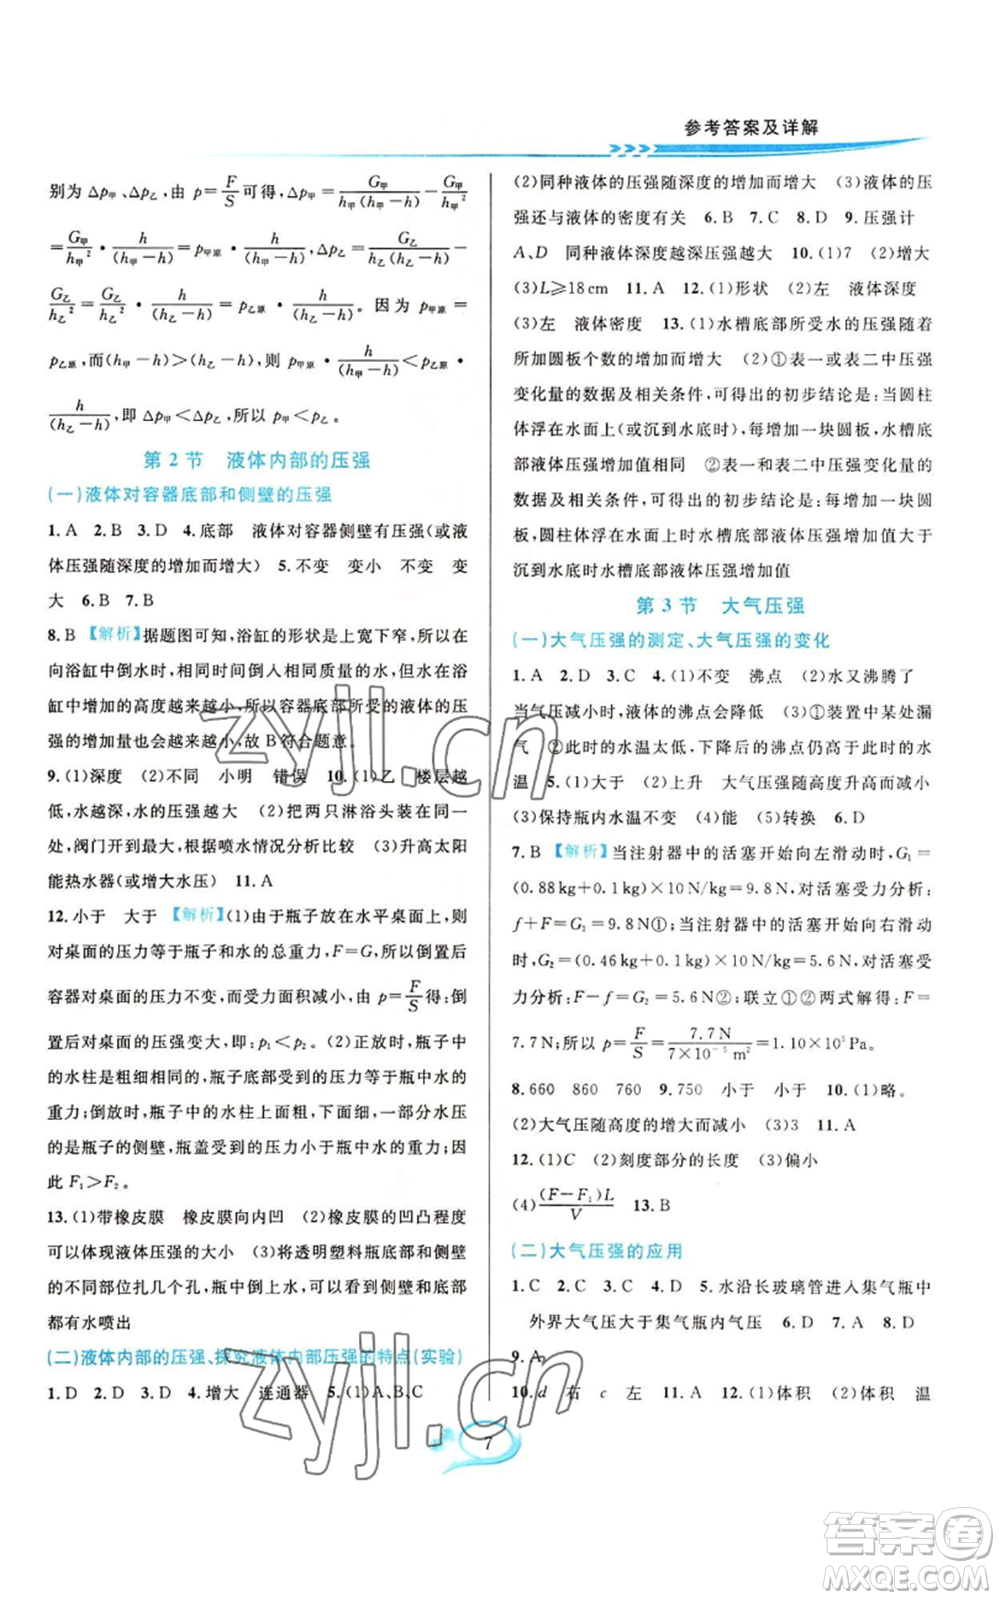 参考答案及详解
别为 Δp甲、Δp乙,由 p=F/S 可得,Δp甲=G甲/[h甲(h甲-h)]-G甲/h甲²
=G甲/h甲²·h/(h甲-h)=p甲原·h/(h甲-h),Δp乙=G乙/[h乙(h乙-h)]-
G乙/h乙²=G乙/h乙²·h/(h乙-h)=p乙原·h/(h乙-h)。因为 p甲原<
p乙原,而(h甲-h)>(h乙-h),则 p甲原·h/(h甲-h)<p乙原·
h/(h乙-h),即 Δp甲<Δp乙,所以 p甲<p乙。
第2节 液体内部的压强
(一)液体对容器底部和侧壁的压强
1.A 2.B 3.D 4.底部 液体对容器侧壁有压强(或液
体压强随深度的增加而增大) 5.不变 变小 不变 变
大 6.B 7.B
8.B 【解析】据题图可知,浴缸的形状上宽下窄,所以在
向浴缸中倒水时,相同时间倒入相同质量的水,水在浴
缸中增加的高度越来越小,容器底部所受的液体的压
强的增加量也会越来越小,故 B 符合题意。
9.(1)深度 (2)不同 小明 错误 10.(1)乙 楼层越
低,水越深,水的压强越大 (2)把两只淋浴头装在一
起,阀门开到最大,根据喷水情况分析比较 (3)升高太阳
能热水器(或增大水压) 11.A
12.小于 大于 【解析】(1)由于瓶子放在水平桌面上,则
对桌面的压力等于瓶子和水的总重力,F=G,倒置后
容器对桌面的压力不变,而受力面积减小,由 p=F/S得:倒
置后对桌面的压强变大,即:p₁<p₂。(2)正放时,瓶子中
的水柱是粗细相同的,瓶子底部受到的压力等于水的
重力;倒放时,瓶子中的水柱上面粗,下面细,一部分水压
的是瓶子的侧壁,瓶盖受到的压力小于瓶中水的重力;因
此 F₁>F₂。
13.(1)带橡皮膜 橡皮膜向内凹 (2)橡皮膜的凹凸程度
可以体现液体压强的大小 (3)将透明塑料瓶底部和侧壁
的不同部位扎几个孔,瓶中倒上水,可以看到侧壁和底部
都有水喷出
(二)液体内部的压强、探究液体内部压强的特点(实验)
1.D 2.B 3.A 4.增大 连通器 5.(1)A、B、C
(2)同种液体的压强随深度的增加而增大 (3)液体的压
强还与液体的密度有关 6.B 7.C 8.D 9.压强计
A、D 同种液体深度越深压强越大 10.(1)7 (2)增大
(3)L≥18cm 11.A 12.(1)形状 (2)左 液体深度
(3)左 液体密度 13.(1)水槽底部所受水的压强随着
所加圆板个数的增加而增大 (2)①表一或表二中压强
变化量的数据及相关条件,可得出的初步结论是:当圆柱
体浮在水面上(或沉到水底)时,每增加一块圆板,水槽底
部液体压强增加值相同 ②表一和表二中压强变化量的
数据及相关条件,可得出的初步结论是:每增加一块圆
板,圆柱体浮在水面上时水槽底部液体压强增加值大于
沉到水底时水槽底部液体压强增加值
第3节 大气压强
(一)大气压强的测定、大气压强的变化
1.A 2.D 3.C 4.(1)不变 沸点 (2)水又沸腾了
当气压减小时,液体的沸点会降低 (3)①装置中某处漏
气 ②此时的水温太低,下降后的沸点仍高于此时的水
温 5.(1)大于 (2)上升 大气压强随高度升高而减小
(3)保持瓶内水温不变 (4)能 (5)转换 6.D
7.B 【解析】当注射器中的活塞开始向左滑动时,G₁=
(0.88kg+0.1kg)×10N/kg=9.8N,对活塞受力分析:
f+F=G₁=9.8N①;当注射器中的活塞开始向右滑动
时,G₂=(0.46kg+0.1kg)×10N/kg=5.6N,对活塞受
力分析:F-f=G₂=5.6N②;联立①②两式解得:F=
7.7N;所以 p=F/S=7.7N/(7×10⁻⁵m²)=1.10×10⁵Pa。
8.660 860 760 9.750 小于 小于 10.(1)略。
(2)大气压随高度的增大而减小 (3)3 11.A
12.(1)C (2)刻度部分的长度 (3)偏小
(4)(F-F₁)L/V 13.B
(二)大气压强的应用
1.C 2.C 3.D 4.D 5.水沿长玻璃管进入集气瓶中
外界大气压大于集气瓶内气压 6.D 7.A 8.D
9.A
10.d 右 c 左 11.A 12.(1)体积 (2)体积 温
7
zyjl.cn
zyjl.cn
答案卷
MXQE.COM